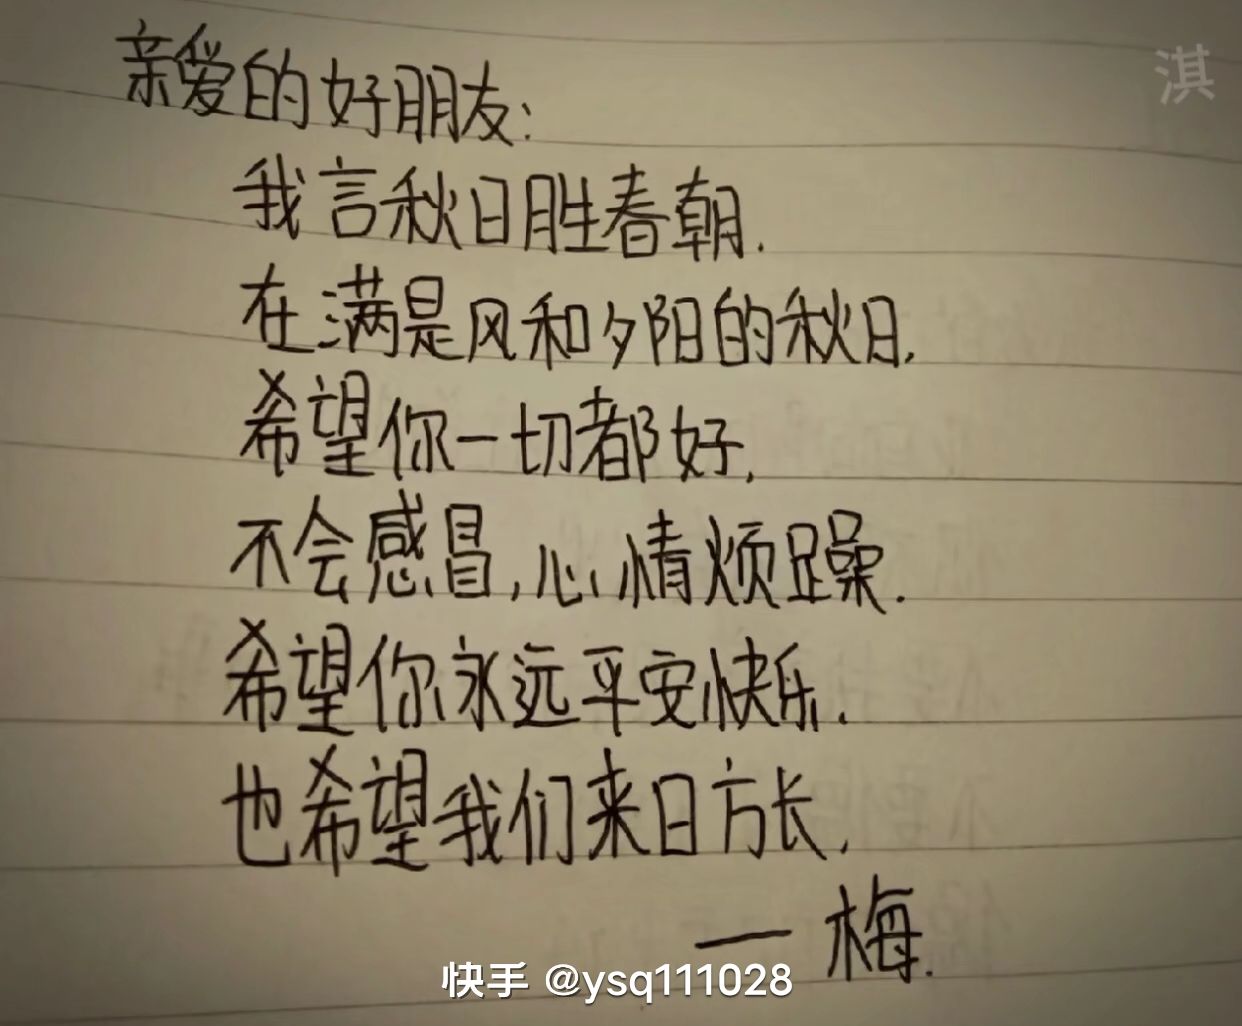 淇
亲爱的好朋友:
我言秋日胜春朝.
在满是风和夕阳的秋日.
希望你一切都好,
不会感冒,心情烦躁.
希望你永远平安快乐.
也希望我们来日方长,
——梅.
快手 @ysq111028